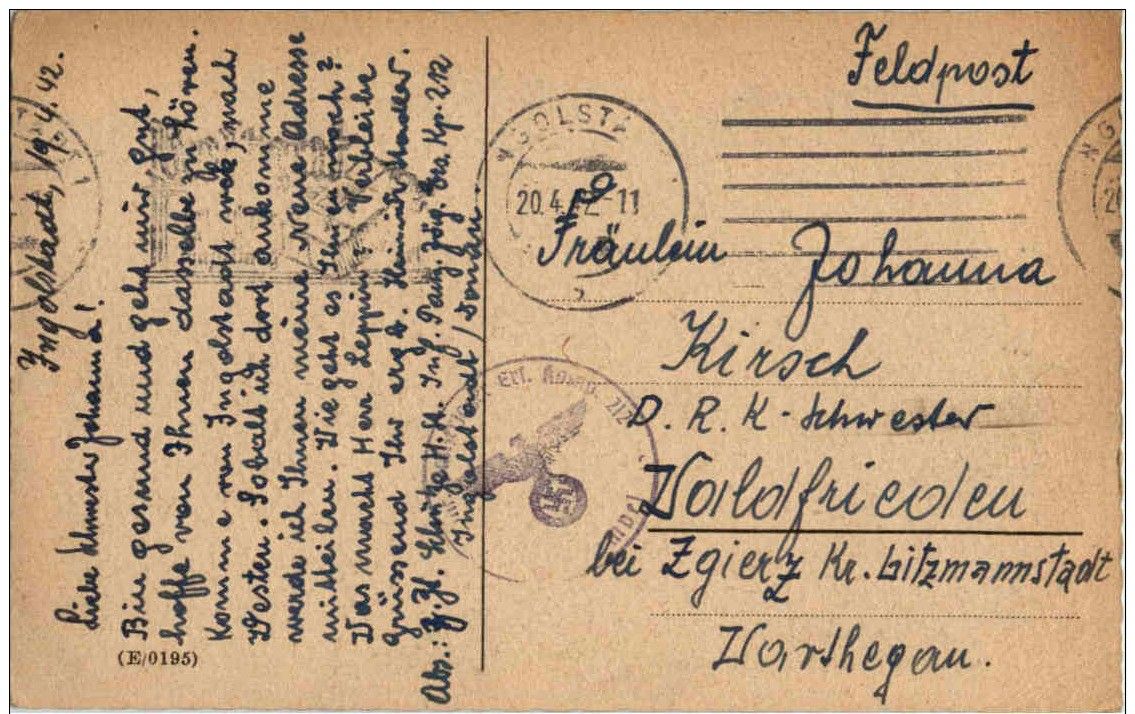 Ingolstadt, 19.4.42.
Liebe Schwester Johanna!
Bin gesund und geht mir gut,
hoffe von Ihnen dasselbe zu hören.
Komme von Ingolstadt weg, nach
Westen. Sobalt ich dort ankomme
werde ich Ihnen meine Neue Adresse
mitteilen. Wie geht es Ihnen noch?
Was macht Herr Leppin? Verbleibe
Grüssend Ihr erg. b. Heinrich
Abs.: H. K. Inf. Panz. Jäg. Ers. Kp. 212
Ingolstadt / Donau.
(E/0195)
Feldpost
NGOLSTA
20.4.42-11
Fräulein Johanna
Kirsch
D. R. K - Schwester
Waldfrieden
bei Zgierz Kr. Litzmannstadt
Warthegau.
Ers. Komp. 212